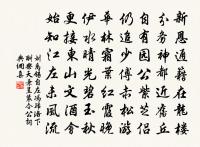 新恩通籍在龍樓
分務神都近舊丘
自有園公紫芝侶
仍追少傅赤松遊
華林霜葉紅霞晚
伊水晴光碧玉秋
更接東山文酒會
始知江左未風流
劉禹錫自左馮歸洛下
酬樂天兼呈裴令公